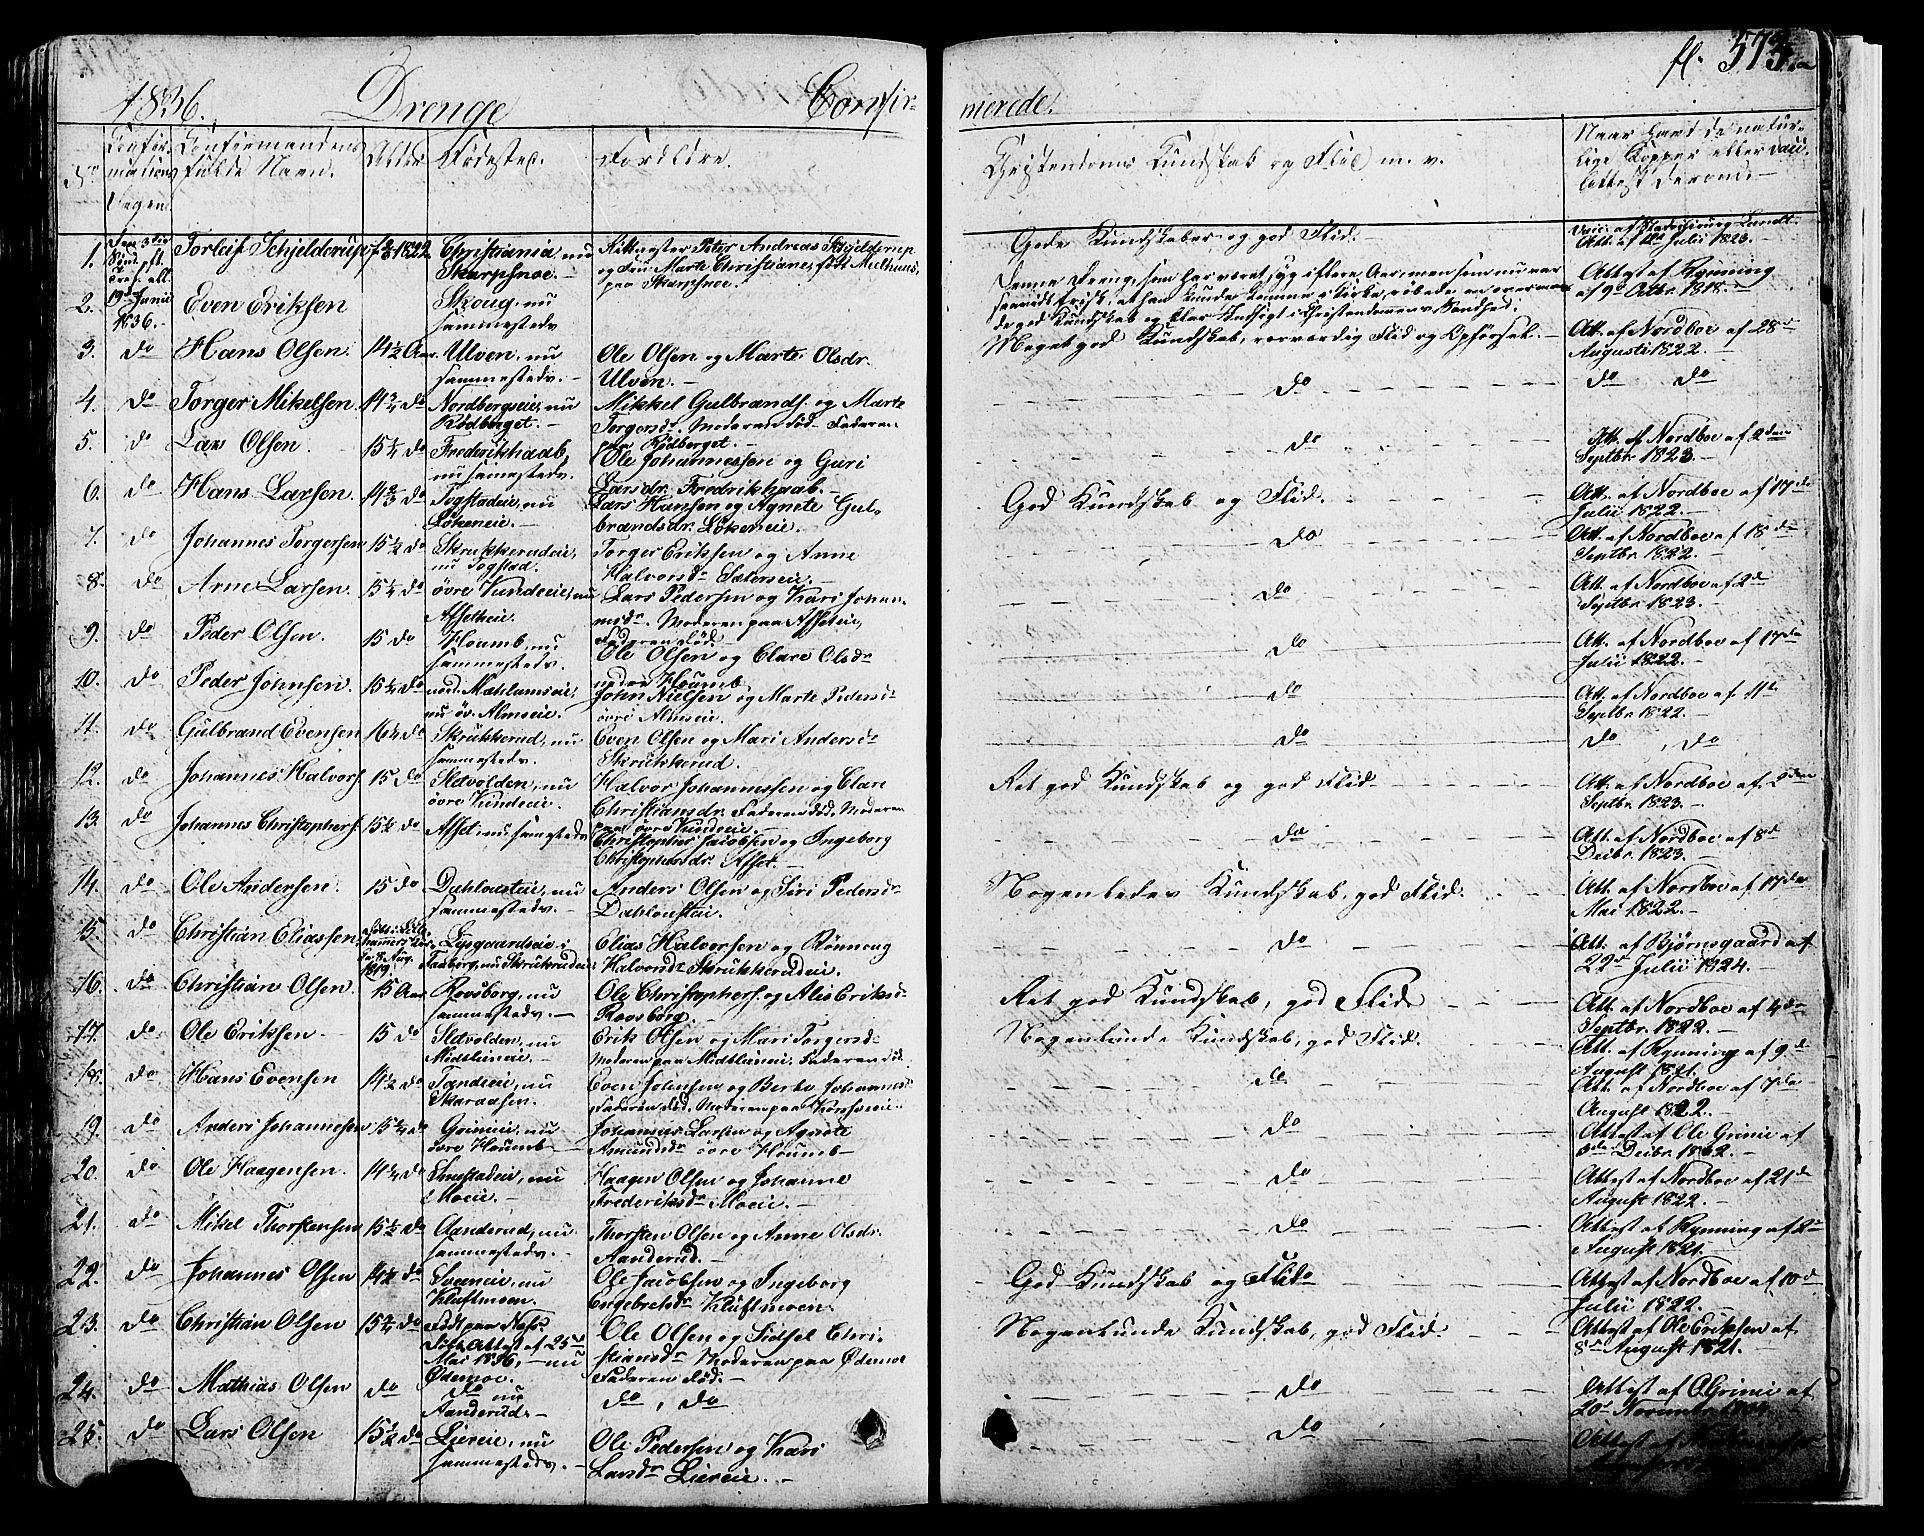 1836. Drenge Confir-
merede.
fl. 573
No
Confir-
mations
Dagen.
Confirmandens
fulde Navn.
Alder
Fødested.
Forældre.
Christendoms Kundskab og Flid m. v.
Naar havt de natur-
lige Kopper eller vacci.
Attest derom.
1. Torleif Schjelderup 1822 Christiania, nu
Skarpsnoe.
Ritmester Peter Andreas Schjelderup
og Fru Marte Christiane, født
paa Skarpsnoe.
Gode Kundskaber og god Flid.
Julii 1823.
19de Junii
1836.
2. Even Eriksen
Skoug, nu
sammestedv
Denne Dreng, som har været syg iflere Aar, men som nu var
Attest af Rynning
af 9de Octbr. 1818.
3. do Hans Olsen. 14½ Aar. Ulven, nu
sammestedv.
Ole Olsen og Marte Olsdr.
Ulven.
Meget god Kundskab, roesværdig Flid og Opførsel.
Att. af Nordboe af 28de
Augusti 1822.
4. do Torger Mikelsen 14¾ do Nordbergseie, nu
Rødberget.
Mikkel Gulbrands. og Marte
Torgersdr. Moderen død. Faderen
paa Rødberget.
do
do do
5. do Lars Olsen 15¼ do Frederikhaab,
nu sammestedv.
Ole Johannessen og Guri
Larsdr. Fredrikhaab.
do
Att. af Nordboe af 2den
Septbr 1823.
6. do Hans Larsen. 14¾ do Togstadeie, nu
Løkeneie.
Lars Hansen og Agnete Gul-
brandsdr. Løkeneie.
God Kundskab og Flid.
Att. af Nordboe af 17de
Julii 1822.
7. do Johannes Torgersen 15½ do Skrukkerudeie,
nu Togstad.
Torger Eriksen og Anne
Halvorsdr Sætereie.
do
Att. af Nordboe af 18de
Septbr 1822.
8. do Arne Larsen. 15¼ do øvre Kundeeie, nu
Assetteie.
Lars Pedersen og Kari Johan-
nesdr. Moderen paa Asseteie,
Faderen død.
do
Att. af Nordboe af 2de
Septbr 1823.
9. do Peder Olsen. 15 do Houmb, nu
sammestedv.
Ole Olsen og Clare Olsdr
nedre Houmb.
do
Att. af Nordboe af 17de
Julii 1822.
10. do Peder Johnsen. 15¼ do ned. Mæhlumseie,
nu øv. Almseie.
John Nielsen og Marte Pedersdr
øvre Almseie.
do
Att. af Nordboe af 11te
Septbr 1822.
11. do Gulbrand Evensen 16¼ do Skrukkerud, nu
sammestedv.
Even Olsen og Mari Andersdr
Skrukkerud.
do
do, do
12. do Johannes Halvors. 15 do Sletvolden, nu
øvre Kundeeie.
Halvor Johannessen og Clare
Christiansdr. Faderen død, Moderen
paa øvre Kundeeie.
Ret god Kundskab og god Flid.
Att. af Nordboe af 2den
Septbr 1823.
13. do Johannes Christophers. 15½ do Asset, nu sammestedv
Christopher Jacobsen og Ingeborg
Christophersdr Asset.
do
Att. af Nordboe af 8de
Decbr. 1823.
14. do Ole Andersen. 15 do Dahloustuen, nu
sammestedv.
Anders Olsen og Siri Pedersdr
Dahloustuen.
Nogenledes Kundskab, god Flid.
Att. af Nordboe af 17de
Mai 1822.
15. do Christian Eliassen
Aug.
1819. Lysgaardseie i
Faaberg, nu Skrukkerudeie.
Elias Halvorsen og Rønnoug
Halvorsdr Skrukkerudeie.
do
Att. af Bjørnsgaard af
22de Julii 1824.
16. do Christian Olsen. 15 Aar. Roosborg, nu
sammestedv.
Ole Christophers. og Alis Eriksdr
Roosborg.
Ret god Kundskab, god Flid
Att. af Nordboe af 4de
Septbr. 1822.
17. do Ole Eriksen 15 do Sletvolden, nu
Midtlieneie.
Erik Olsen og Mari Torgersdr
Moderen paa Midtlieneie, Faderen død.
Nogenlunde Kundskab, god Flid.
Att. af Rynning af 9de
August 1821.
18. do Hans Evensen 14½ do Tandeeie, nu
Skaraasen.
Even Johnsen og Berte Johannesdr
Faderen død, Moderen paa Korsveeie.
do
Att. af Nordboe af 7de
August 1822.
19. do Anders Johannesen 15¾ do Grimeie, nu
øvre Houmb
Johannes Larsen og Agnete
Amundsdr øvre Houmb
do
Attest af Ole Grime af
Decbr.
20. do Ole Haagensen. 14¾ do Smestadeie, nu
Moeie.
Haagen Olsen og Johanne
Frederiksdr. Moeie.
do
Attest af Nordboe af 21de
August 1822.
21. do Mikel Thorstensen 15½ do Aanderud, nu
sammestedv.
Thorsten Olsen og Anne Olsdr.
Aanderud.
do
Attest af Rynning af 2de
August 1821.
22. do Johannes Olsen 14½ do Sveneie, nu
Kluftmoen.
Ole Jacobsen og Ingeborg
Engebretsdr Kluftmoen.
God Kundskab og Flid
Attest af Nordboe af 10de
Julii 1822.
23. do Christian Olsen 15¾ do Født paa Næs,
Attest af 25de
Mai 1836, nu
Ødemoe.
Ole Olsen og Sidsel Chri-
stiansdr Moderen paa Ødemoe
Faderen død.
Nogenlunde Kundskab, god Flid.
Attest af Ole Eriksen af
8de August 1821.
24. do Mathias Olsen do do nu
Aanderud.
do, do
do
Attest af O. Grime af
20de November
25. do Lars Olsen 15½ do Liereie, nu
sammestedv.
Ole Pedersen og Kari
Larsdr Liereie.
do
Attest af